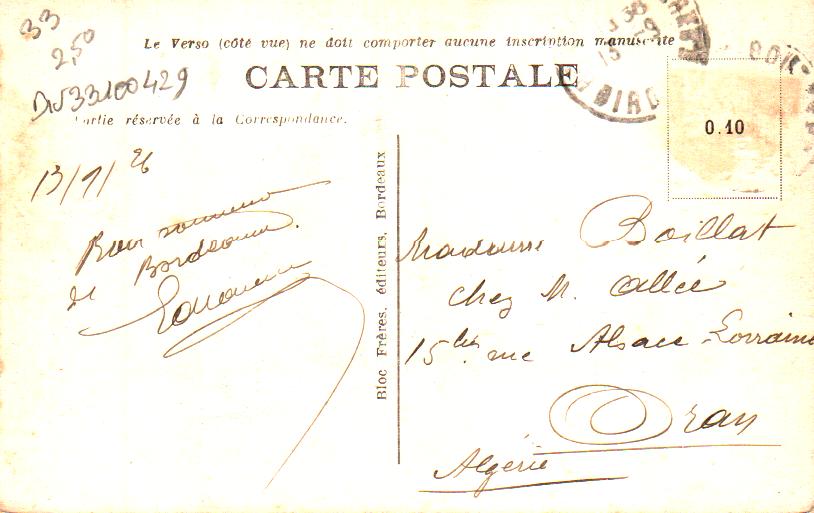 33
2,50
Le Verso (côté vue) ne doit comporter aucune inscription manuscrite
CARTE POSTALE
Partie réservée à la Correspondance.
0.10
13/1/26
Bon souvenir
de Bordeaux.
Bloc Frères, éditeurs, Bordeaux
Madame Boillat
chez M. Allée
15 bis rue Alsace-Lorraine
Oran
Algérie